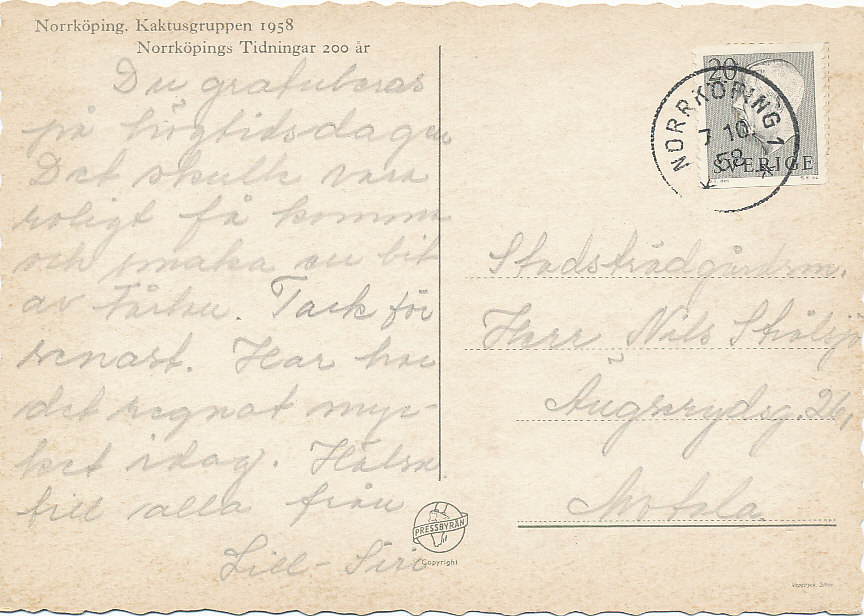 Norrköping. Kaktusgruppen 1958
Norrköpings Tidningar 200 år
Du gratuleras
på högtidsdagen
Det skulle vara
roligt få komma
och smaka en bit
av tårtan. Tack för
senast. Här har
det regnat myc-
ket idag. Hälsa
till alla från
Lill-Siri
20
SVERIGE
NORRKÖPING 1
7 10
58
Stadsträdgårdsm.
Herr Nils
26,
Motala
PRESSBYRÅN
Copyright